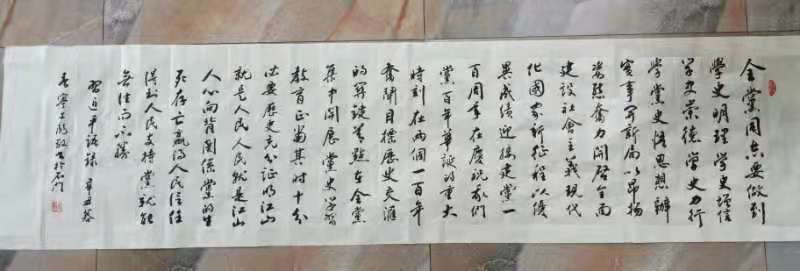 全党同志要做到
学史明理学史增信
学史崇德学史力行
学党史悟思想办
实事开新局以昂扬
姿态奋力开启全面
建设社会主义现代
化国家新征程以优
异成绩迎接建党一
百周年在庆祝我们
党百年华诞的重大
时刻在两个一百年
奋斗目标历史交汇
的关键节点在全党
集中开展党史学习
教育正当其时十分
必要历史充分证明江山
就是人民人民就是江山
人心向背关系党的生
死存亡赢得人民信任
得到人民支持党就能
无往而不胜
习近平语录 辛丑春
书于石门